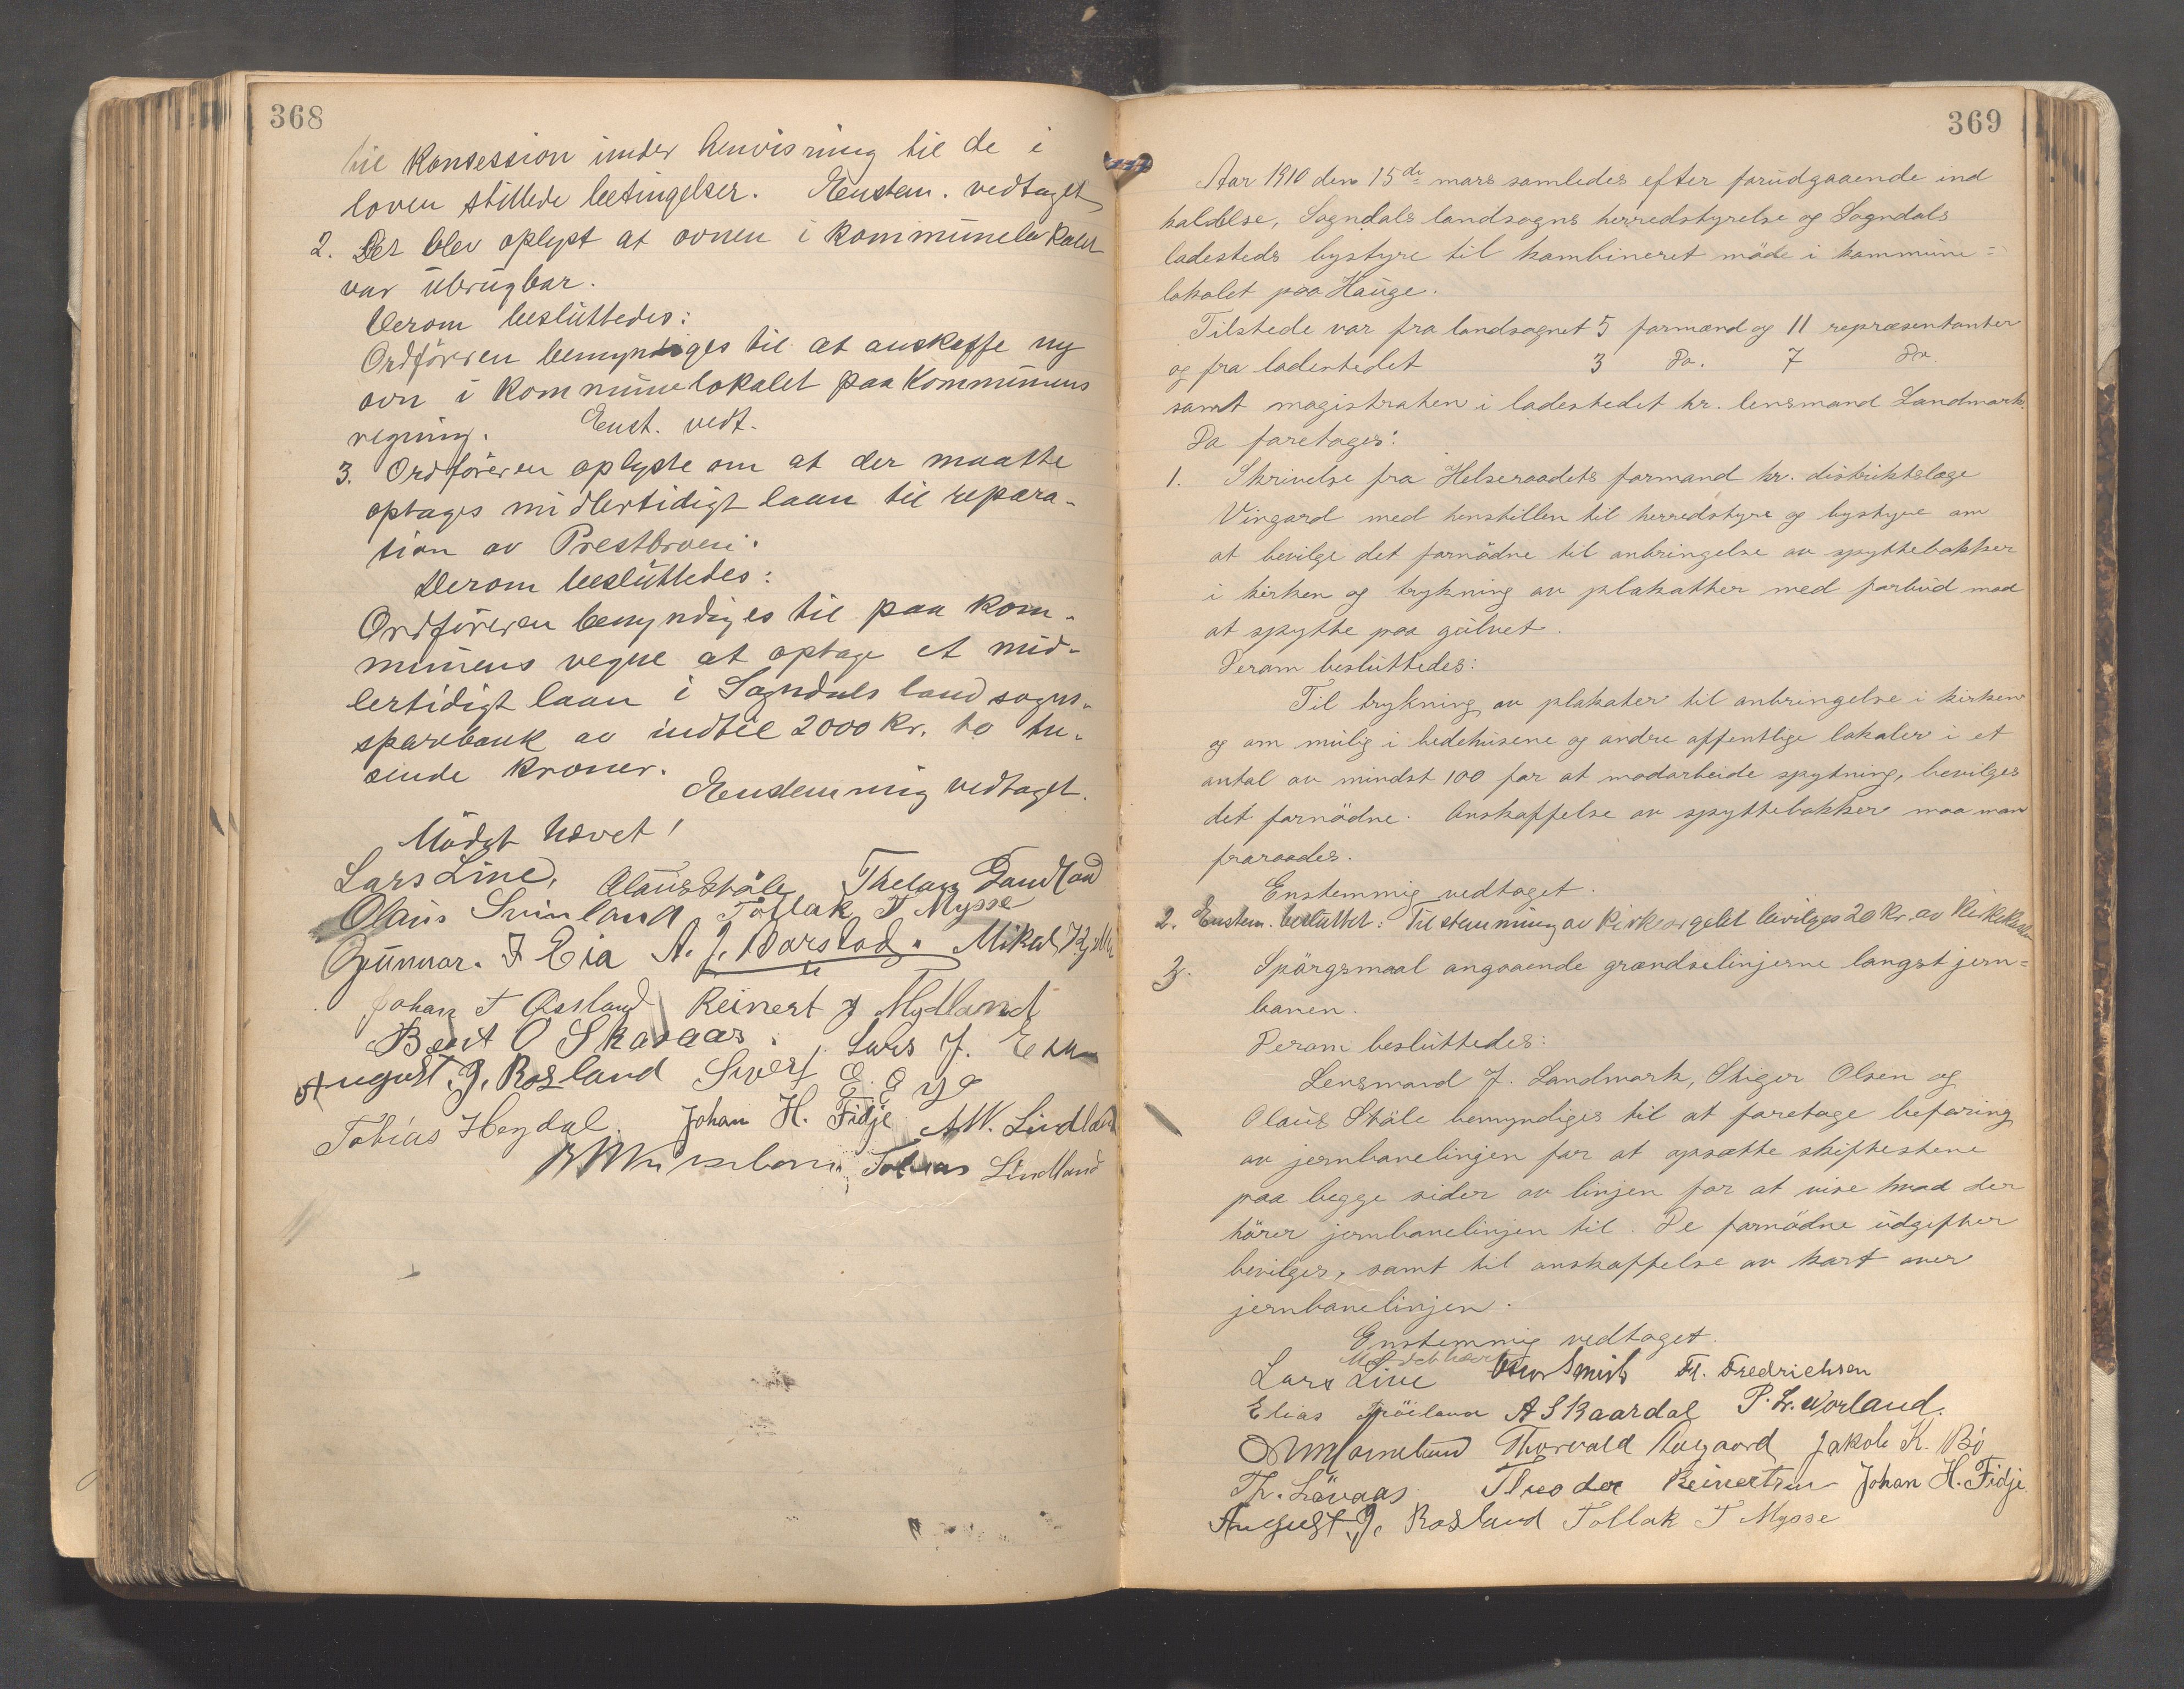 368
til Konsession under henvisning til de i
loven stillede betingelser. Enstem. vedtaget
2. Det blev oplyst at ovnen i kommunelokalet
var ubrugbar.
Derom besluttedes:
Ordföreren bemyndiges til at anskaffe ny
ovn i kommunelokalet paa Kommunens
regning. Enst. vedt.
3. Ordföreren oplyste om at der maatte
optages midlertidigt laan til repara-
tion av Prestbroen.
Derom besluttedes:
Ordföreren bemyndiges til paa kom-
munens vegne at optage et mid-
lertidigt laan i Sogndals landsogns-
sparebank av indtil 2000 Kr. to tu-
sinde Kroner.
Enstemmig vedtaget.
Mödet hævet!
Lars Line, Olaus Ståle
Olaus Svinland Tollak T Mysse
Gunnar. T Eia A. J. Barstad. Mikal
Johan T Reinert J Mydland
Berit O Skaraas. Lars J.
August. J. Rosland Sivert E. Eye
Tobias Heydal. Johan H. Fidje A W. Lindland
Tobias Lindland
369
Aar 1910 den 15de mars samledes efter forudgaaende ind
kaldelse, Sogndals landsogns herredstyrelse og Sogndals
ladesteds bystyre til kombineret möde i kommune=
lokalet paa Hauge.
Tilstede var fra landsognet 5 formænd og 11 repræsentanter
og fra ladestedet 3 Do. 7 Do.
samt magistraten i ladestedet hr. lensmand Landmark.
Da foretoges:
1. Skrivelse fra Helseraadets formand hr. distriktslæge
Vingard med henstillen til herredstyre og bystyre om
at bevilge det fornödne til anbringelse av spyttebakker
i kirken og trykning av plakatter med forbud mod
at spytte paa gulvet.
Derom besluttedes:
Til trykning av plakater til anbringelse i kirken
og om mulig i bedehusene og andre offentlige lokaler i et
antal av mindst 100 for at modarbeide spytning, bevilges
det fornödne. Anskaffelse av spyttebakker maa man
fraraades.
Enstemmig vedtaget.
2. Enstem. besluttet: Til stemning av Kirkeorgelet bevilges 20 Kr. av Kirkekassen
3. Spörgsmaal angaaende grændselinjerne langst jern=
banen.
Derom besluttedes:
Lensmand J. Landmark, Stiger Olsen og
Olaus Ståle bemyndiges til at foretage befaring
av jernbanelinjen for at opsætte skiftestene
paa begge sider av linjen for at vise hvad der
hörer jernbanelinjen til. De fornödne udgifter
bevilges, samt til anskaffelse av kart over
jernbanelinjen.
Enstemmig vedtaget.
Mödet hævet
Lars Line Fr. Fredriksen
Elias Fröiland A S Baardal P. L. Worland.
Thorvald Jakob K. Bö
Th. Lövaas Theodor Reinertsen Johan H. Fidje
August. J. Rosland Tollak T Mysse